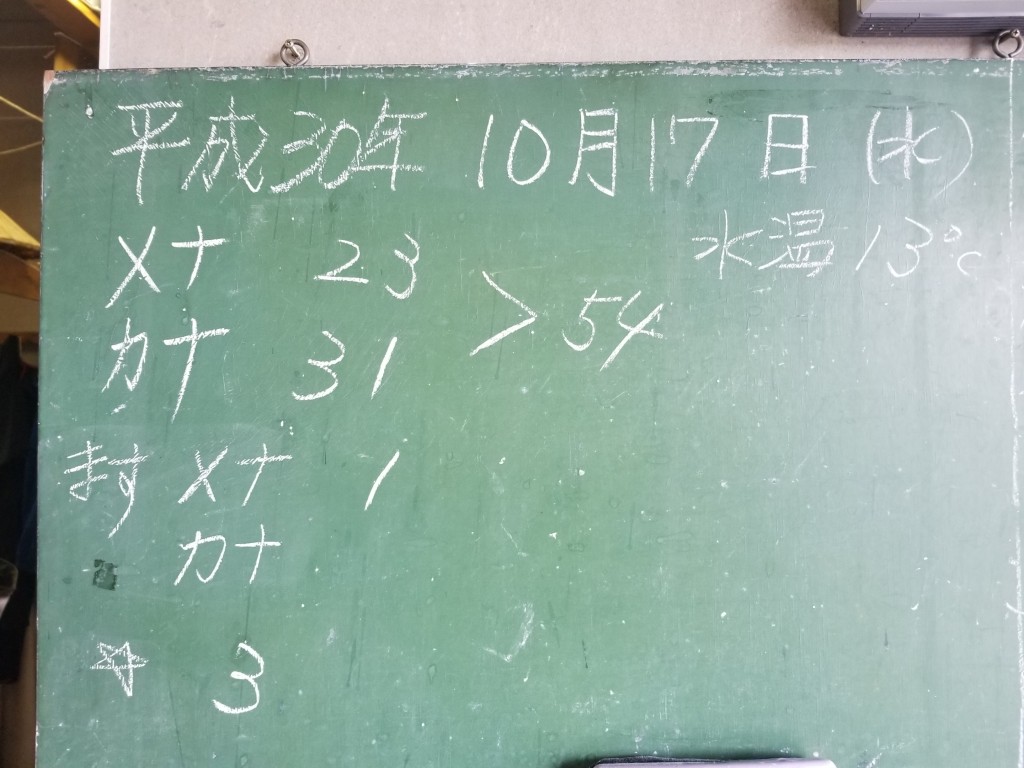 平成30年 10月17日(水)
水温 13℃
メナ 23
カナ 31
> 54
ます メナ 1
カナ
☆ 3